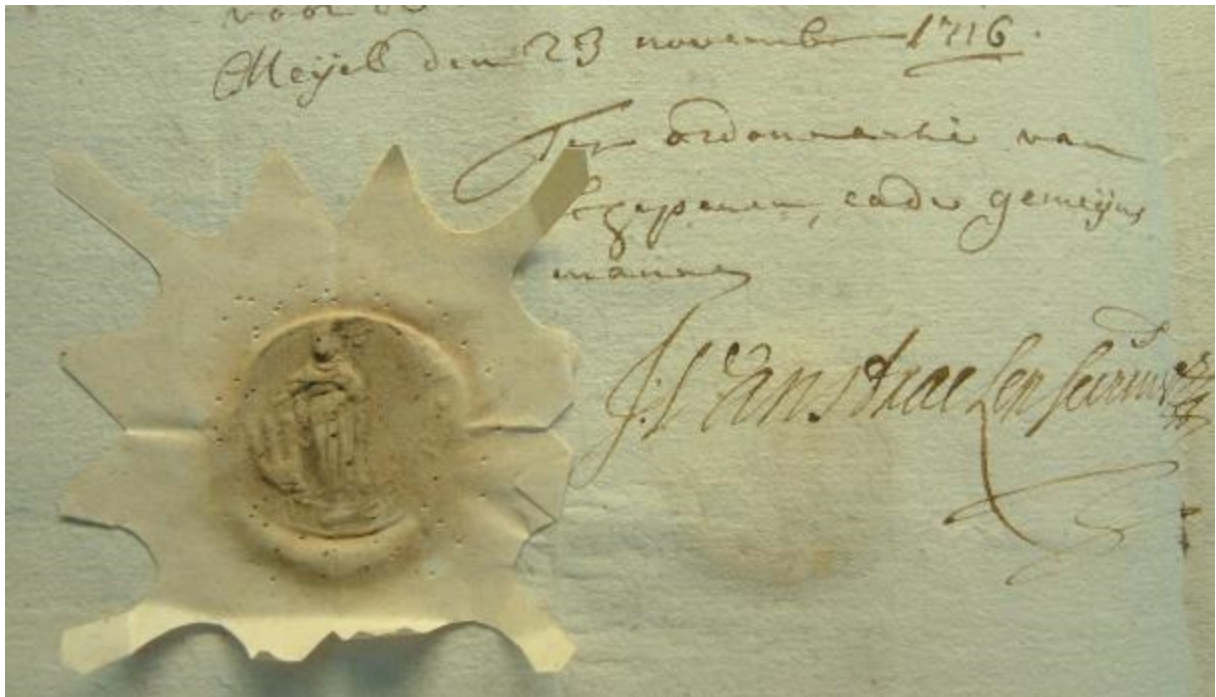 voor de
Meijel den 23 november 1716.
Ter ordonnantie van
schepenen, ende gemeijns
mannen
J: Vanstraelen